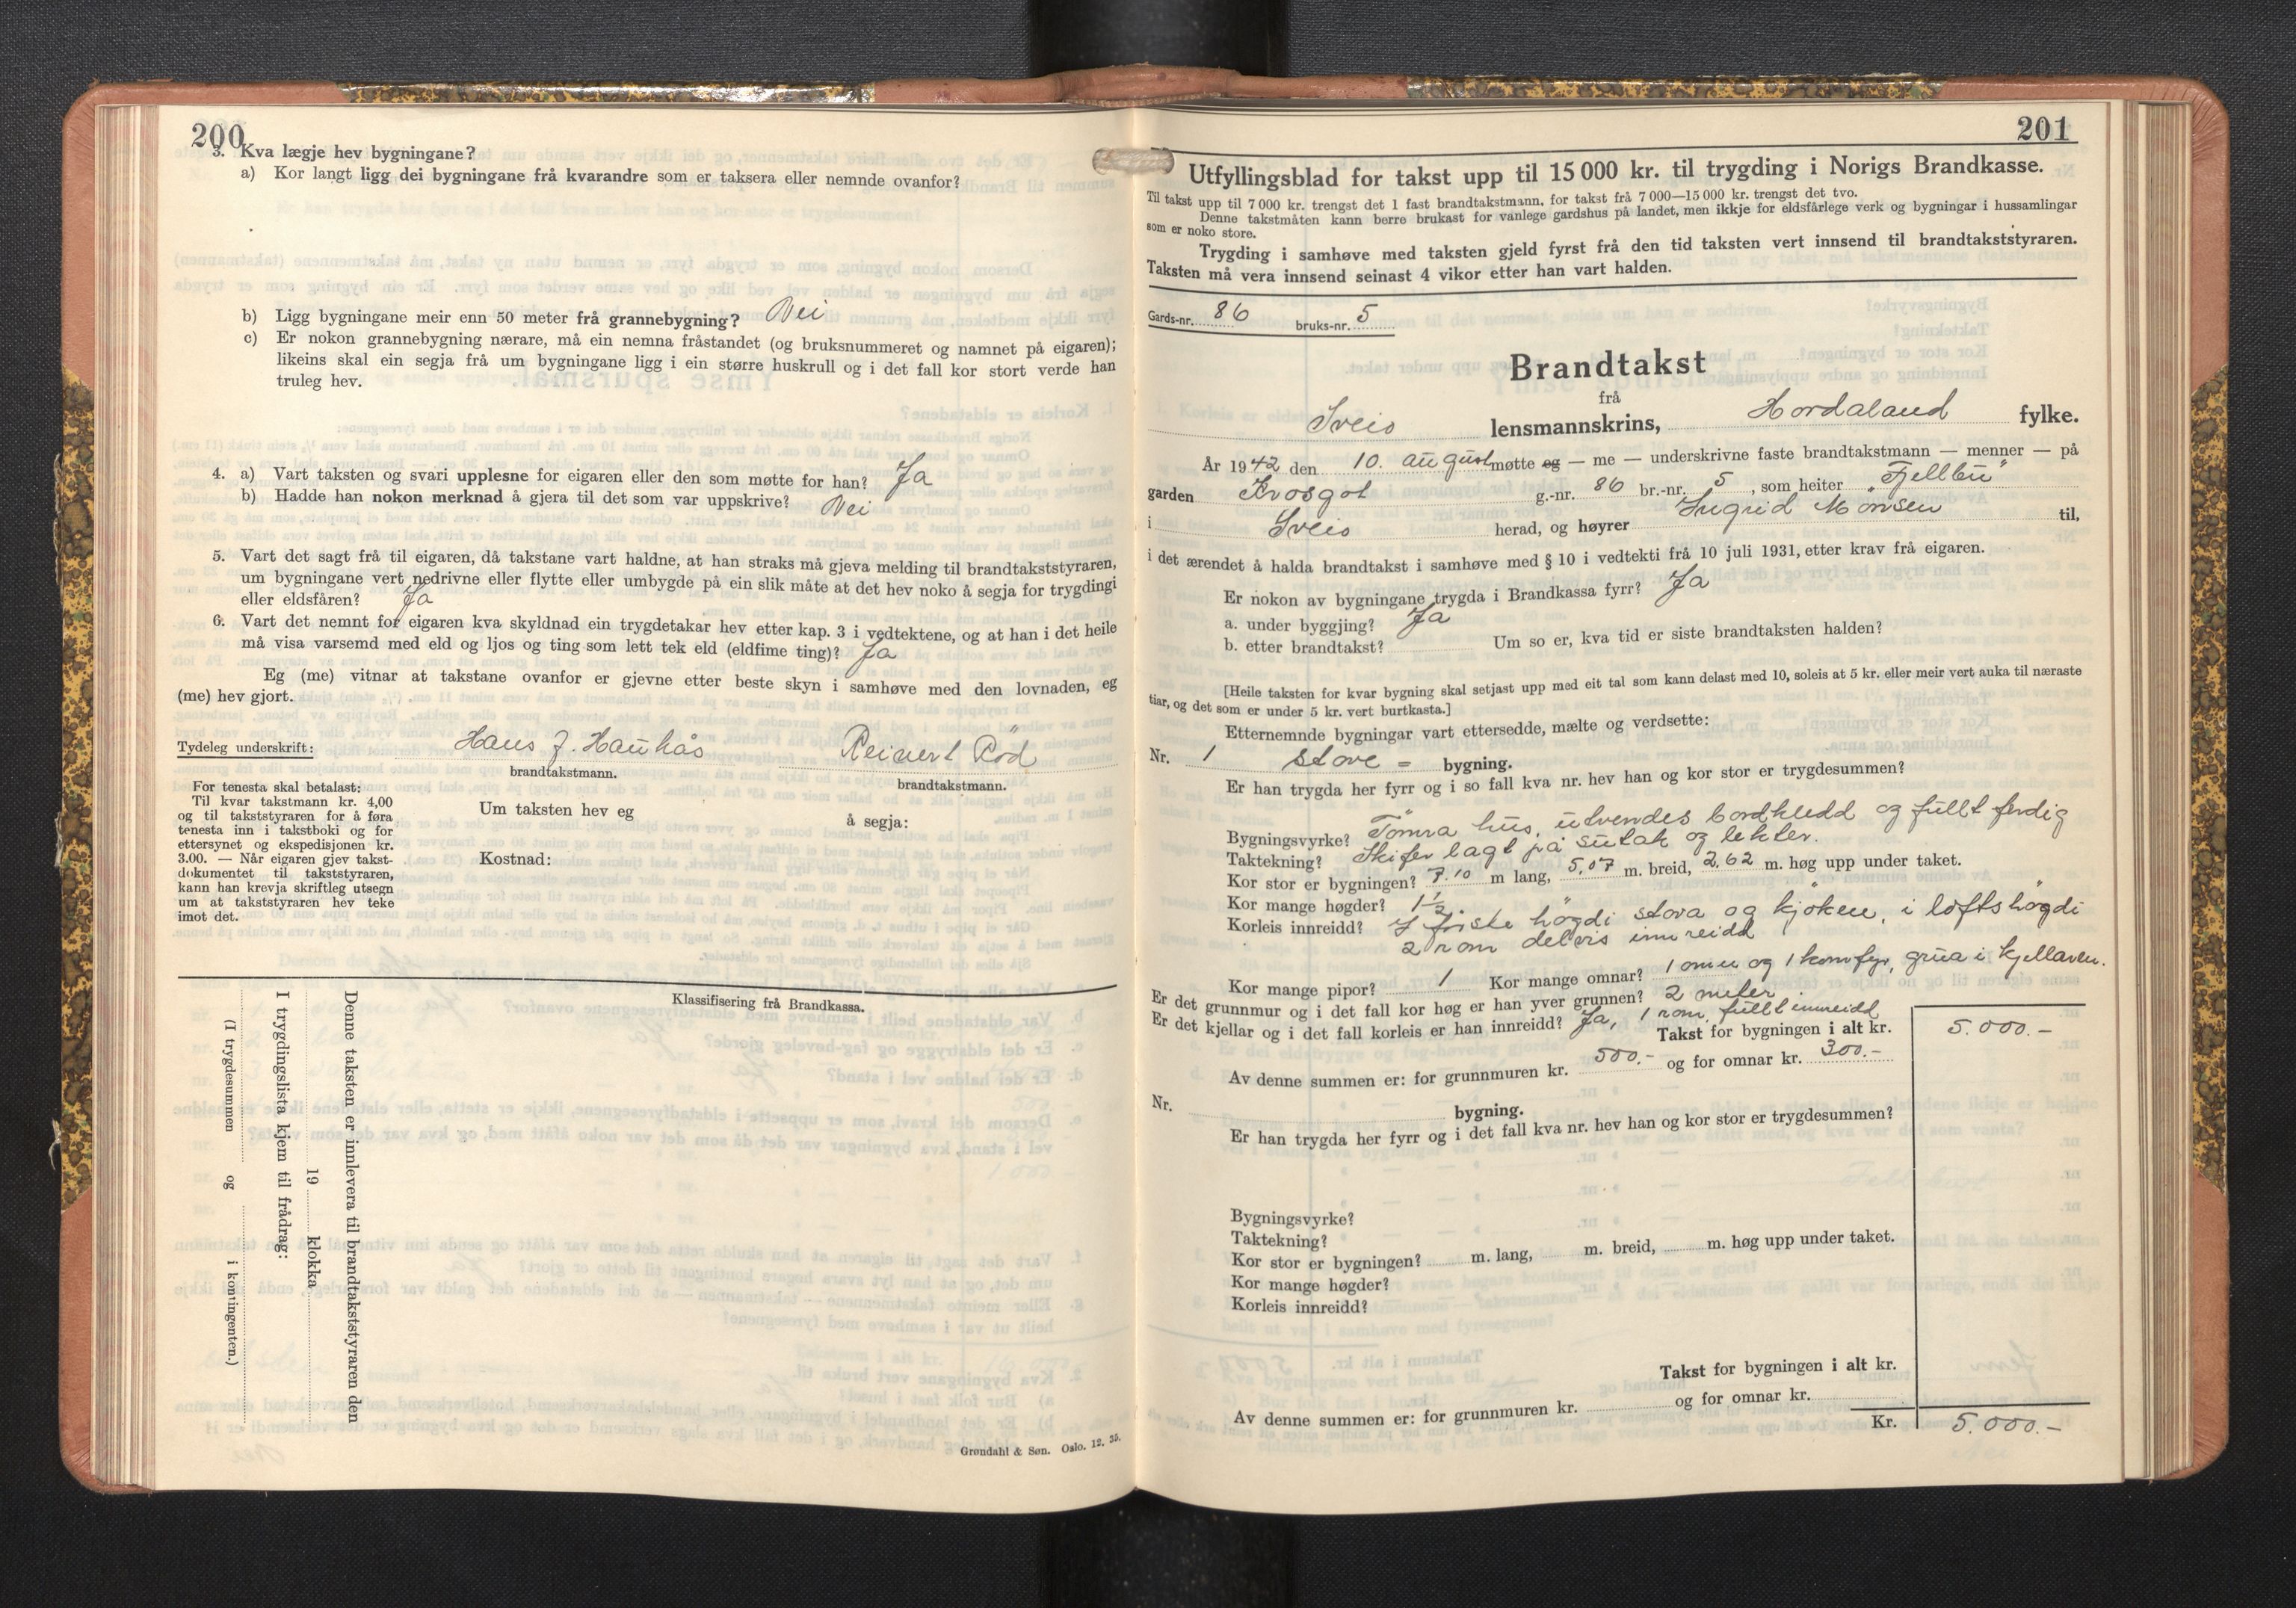 200
3. Kva lægje hev bygningane?
a) Kor langt ligg dei bygningane frå kvarandre som er taksera eller nemnde ovanfor?
b) Ligg bygningane meir enn 50 meter frå grannebygning? Nei
c) Er nokon grannebygning nærare, må ein nemna fråstandet (og bruksnummeret og namnet på eigaren);
likeins skal ein segja frå um bygningane ligg i ein større huskrull og i det fall kor stort verde han
truleg hev.
4. a) Vart taksten og svari upplesne for eigaren eller den som møtte for han? Ja
b) Hadde han nokon merknad å gjera til det som var uppskrive? Nei
5. Vart det sagt frå til eigaren, då takstane vart haldne, at han straks må gjeva melding til brandtakststyraren,
um bygningane vert nedrivne eller flytte eller umbygde på ein slik måte at det hev noko å segja for trygdingi
eller eldsfåren? Ja
6. Vart det nemnt for eigaren kva skyldnad ein trygdetakar hev etter kap. 3 i vedtektene, og at han i det heile
må visa varsemd med eld og ljos og ting som lett tek eld (eldfime ting)? Ja
Eg (me) vitnar at takstane ovanfor er gjevne etter beste skyn i samhøve med den lovnaden, eg
(me) hev gjort.
Tydeleg underskrift: Hans J. Hauhås Reinert Rød
brandtakstmann. brandtakstmann.
For tenesta skal betalast:
Til kvar takstmann kr. 4,00
og til takststyraren for å føra
tenesta inn i takstboki og for
ettersynet og ekspedisjonen kr.
3.00. — Når eigaren gjev takst-
dokumentet til takststyraren,
kann han krevja skriftleg utsegn
um at takststyraren hev teke
imot det.
Um taksten hev eg å segja:
Kostnad:
Klassifisering frå Brandkassa.
Denne taksten er innlevera til brandtakststyraren den
19 klokka
I trygdingslista kjem til frådrag:
(I trygdesummen og i kontingenten.)
Grøndahl & Søn. Oslo. 12. 35.
201
Utfyllingsblad for takst upp til 15 000 kr. til trygding i Norigs Brandkasse.
Til takst upp til 7 000 kr. trengst det 1 fast brandtakstmann, for takst frå 7 000—15 000 kr. trengst det tvo.
Denne takstmåten kann berre brukast for vanlege gardshus på landet, men ikkje for eldsfårlege verk og bygningar i hussamlingar
som er noko store.
Trygding i samhøve med taksten gjeld fyrst frå den tid taksten vert innsend til brandtakststyraren.
Taksten må vera innsend seinast 4 vikor etter han vart halden.
Gards-nr. 86 bruks-nr. 5
Brandtakst
frå
Sveio lensmannskrins, Hordaland fylke.
År 1942 den 10. august møtte eg — me — underskrivne faste brandtakstmann — menner — på
garden g.-nr. 86 br.-nr. 5, som heiter "Fjellbu"
i Sveio herad, og høyrer Ingrid Monsen til,
i det ærendet å halda brandtakst i samhøve med § 10 i vedtekti frå 10 juli 1931, etter krav frå eigaren.
Er nokon av bygningane trygda i Brandkassa fyrr? Ja
a. under byggjing? Ja
b. etter brandtakst? Um so er, kva tid er siste brandtaksten halden?
[Heile taksten for kvar bygning skal setjast upp med eit tal som kann delast med 10, soleis at 5 kr. eller meir vert auka til næraste
tiar, og det som er under 5 kr. vert burtkasta.]
Etternemnde bygningar vart ettersedde, mælte og verdsette:
Nr. 1 stove = bygning.
Er han trygda her fyrr og i so fall kva nr. hev han og kor stor er trygdesummen?
Bygningsvyrke? Tømra hus, utvendes bordkledd og fullt ferdig
Taktekning? Skifer lagt på sutak og lekter.
Kor stor er bygningen? 7.10 m lang, 5,07 m. breid, 2,62 m. høg upp under taket.
Kor mange høgder? 1½
Korleis innreidd? I fyrste høgdi stova og kjøken, i loftshøgdi
2 rom delvis innreidd
Kor mange pipor? 1 Kor mange omnar? 1 omn og 1 komfyr, grua i kjellaren.
Er det grunnmur og i det fall kor høg er han yver grunnen? 2 meter
Er det kjellar og i det fall korleis er han innreidd? Ja, 1 rom, fullt innreidd
Takst for bygningen i alt kr. 5.000.-
Av denne summen er: for grunnmuren kr. 500.- og for omnar kr. 300.-
Nr. bygning.
Er han trygda her fyrr og i det fall kva nr. hev han og kor stor er trygdesummen?
Bygningsvyrke?
Taktekning?
Kor stor er bygningen? m. lang, m. breid, m. høg upp under taket.
Kor mange høgder?
Korleis innreidd?
Takst for bygningen i alt kr.
Av denne summen er: for grunnmuren kr. og for omnar kr.
Kr. 5.000.-